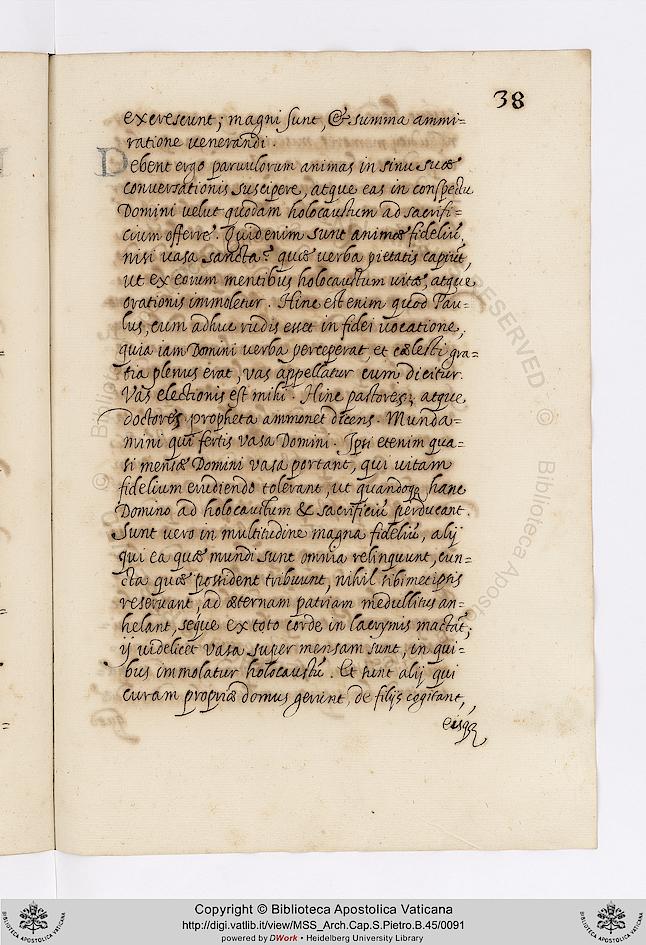 38
excrescunt; magni sunt, & summa ammi=
ratione venerandi.
Debent ergo paruulorum animas in sinu suæ
conuersationis suscipere, atque eas in conspectu
Domini velut quodam holocaustum ad sacrifi=
cium offerre. Quid enim sunt animæ fideliū,
nisi vasa sancta? quæ verba pietatis capiūt,
ut ex eorum mentibus holocaustum vitæ, atque
orationis immoletur. Hinc est enim quod Pau=
lus, cum adhuc rudis esset in fidei uocatione,
quia iam Domini verba perceperat, et cælesti gra=
tia plenus erat, vas appellatur cum dicitur.
Vas electionis est mihi. Hinc pastores, atque
doctores propheta ammonet dicens. Munda=
mini qui fertis vasa Domini. Ipsi etenim qua=
si mensæ Domini vasa portant, qui uitam
fidelium erudiendo tolerant, ut quandoq hanc
Domino ad holocaustum & sacrificiū perducant.
Sunt vero in multitudine magna fideliū, alij
qui ea quæ mundi sunt omnia relinquunt, cun=
cta quæ possident tribuunt, nihil sibimetipsis
reseruant, ad æternam patriam medullitus an=
helant, seque ex toto corde in lacrymis mactāt;
ij uidelicet vasa super mensam sunt, in qui=
bus immolatur holocaustū. Et sunt alij qui
curam propriæ domus gerunt, de filijs cogitant,
eisq
© Biblioteca Apostolica
RESERVED
Copyright © Biblioteca Apostolica Vaticana
http://digi.vatlib.it/view/MSS_Arch.Cap.S.Pietro.B.45/0091
powered by DWork • Heidelberg University Library